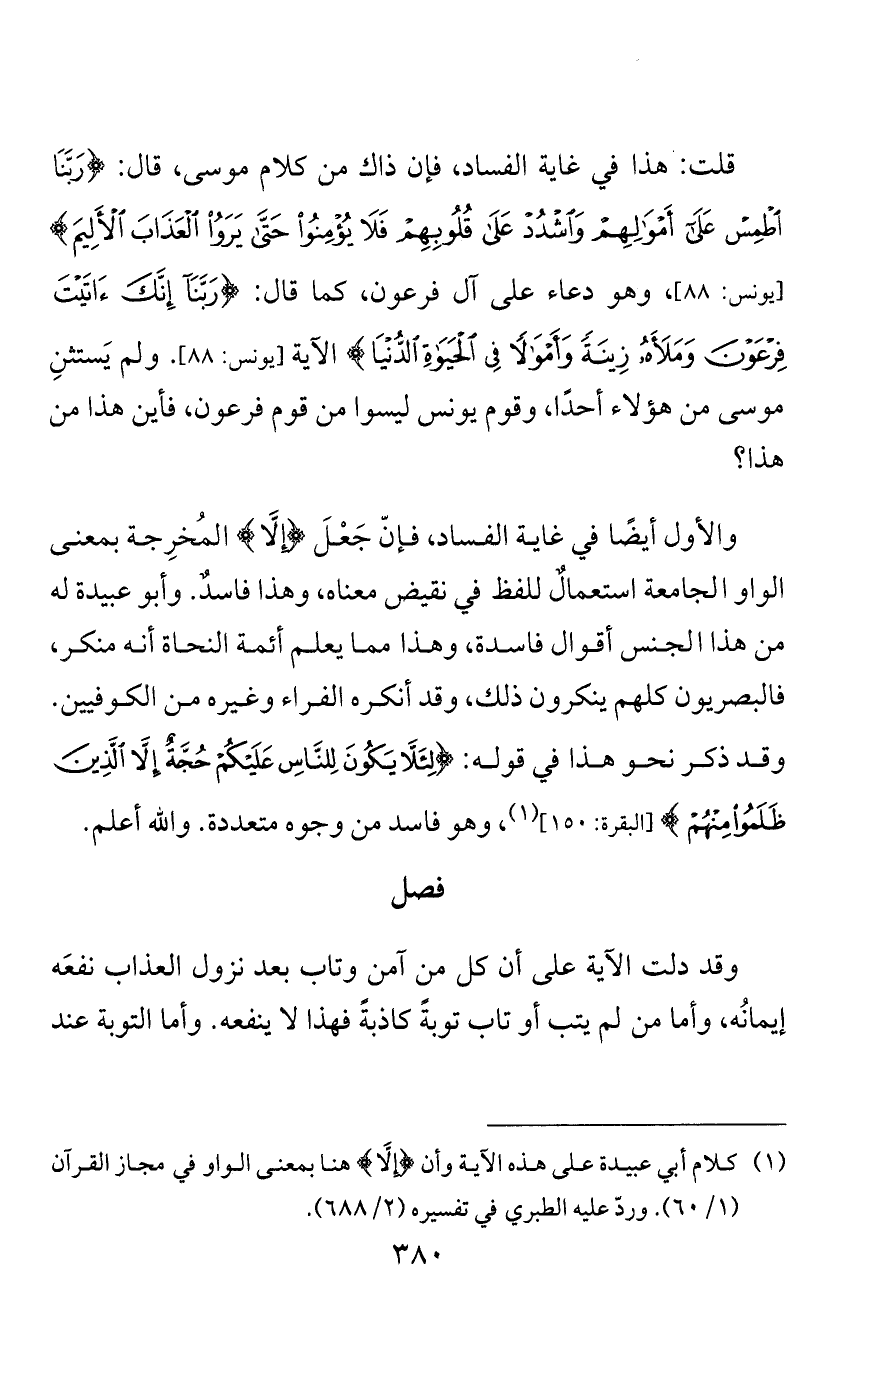 قلت: هذا في غاية الفساد، فإن ذاك من كلام موسى، قال: ﴿رَبَّنَا
ٱطْمِسْ عَلَىٰٓ أَمْوَٰلِهِمْ وَٱشْدُدْ عَلَىٰ قُلُوبِهِمْ فَلَا يُؤْمِنُوا۟ حَتَّىٰ يَرَوُا۟ ٱلْعَذَابَ ٱلْأَلِيمَ﴾
[يونس: ٨٨]، وهو دعاء على آل فرعون، كما قال: ﴿رَبَّنَآ إِنَّكَ ءَاتَيْتَ
فِرْعَوْنَ وَمَلَأَهُۥ زِينَةً وَأَمْوَٰلًا فِى ٱلْحَيَوٰةِ ٱلدُّنْيَا﴾ الآية [يونس: ٨٨]. ولم يَستثنِ
موسى من هؤلاء أحدًا، وقوم يونس ليسوا من قوم فرعون، فأين هذا من
هذا؟
والأول أيضًا في غاية الفساد، فإنّ جَعْلَ ﴿إِلَّا﴾ المُخرِجة بمعنى
الواو الجامعة استعمالٌ للفظ في نقيض معناه، وهذا فاسدٌ. وأبو عبيدة له
من هذا الجنس أقوال فاسدة، وهذا مما يعلم أئمة النحاة أنه منكر،
فالبصريون كلهم ينكرون ذلك، وقد أنكره الفراء وغيره من الكوفيين.
وقد ذكر نحو هذا في قوله: ﴿لِئَلَّا يَكُونَ لِلنَّاسِ عَلَيْكُمْ حُجَّةٌ إِلَّا ٱلَّذِينَ
ظَلَمُوا۟ مِنْهُمْ﴾ [البقرة: ١٥٠](١)، وهو فاسد من وجوه متعددة. والله أعلم.
فصل
وقد دلت الآية على أن كل من آمن وتاب بعد نزول العذاب نفعَه
إيمانُه، وأما من لم يتب أو تاب توبةً كاذبةً فهذا لا ينفعه. وأما التوبة عند
(١) كلام أبي عبيدة على هذه الآية وأن ﴿إِلَّا﴾ هنا بمعنى الواو في مجاز القرآن
(١/ ٦٠). وردّ عليه الطبري في تفسيره (٢/ ٦٨٨).
٣٨٠